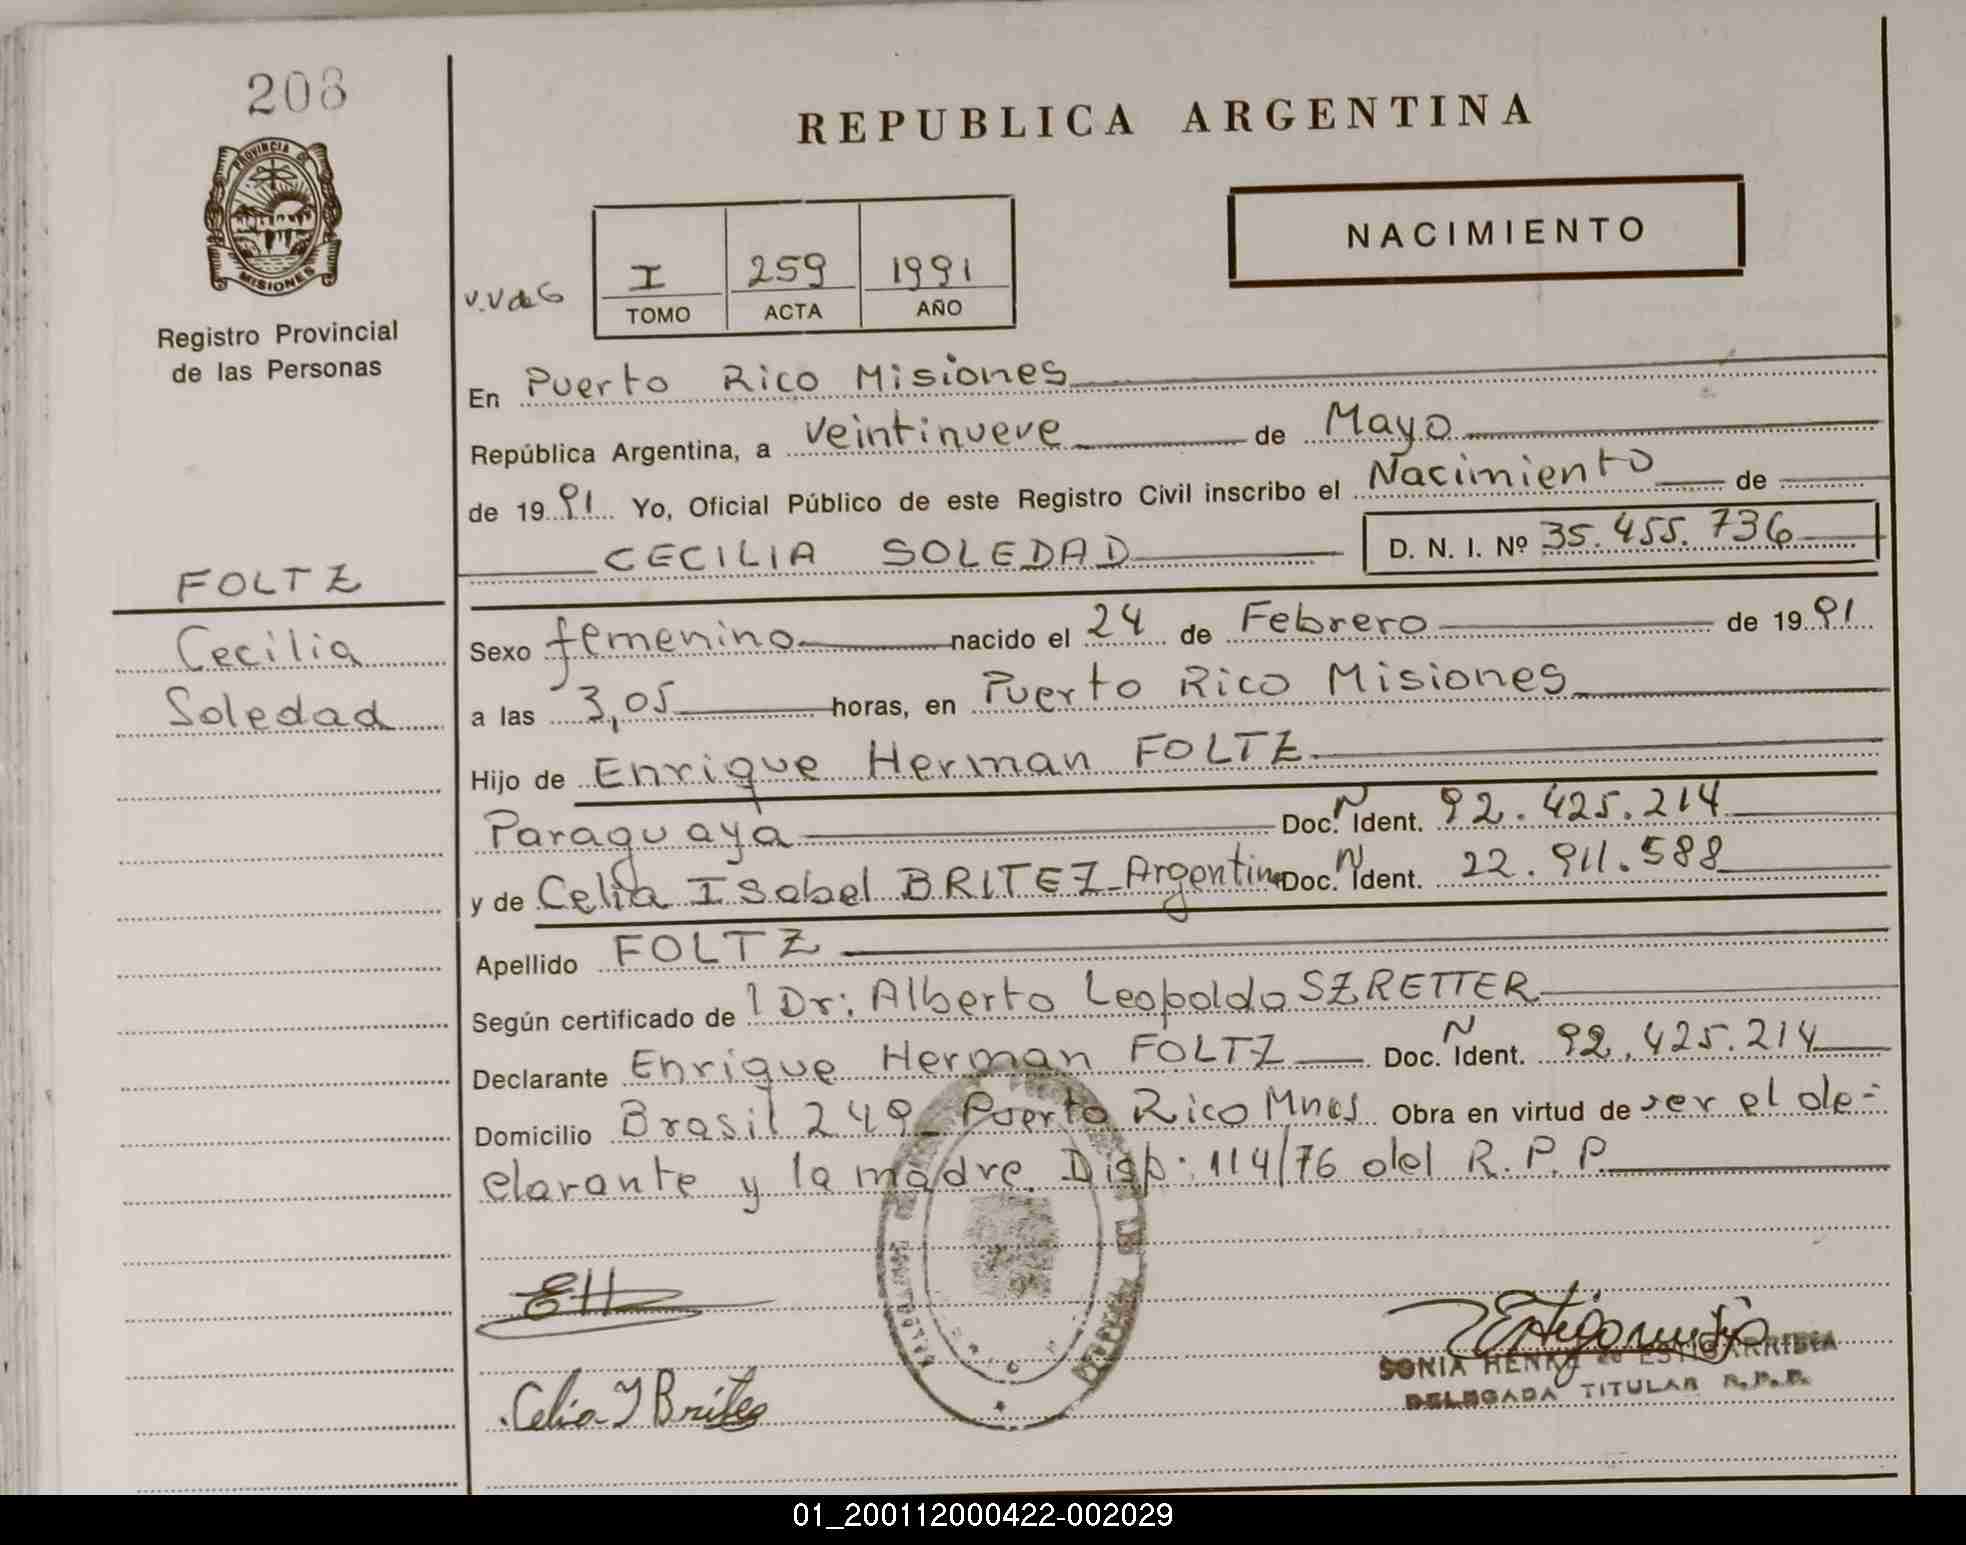 208
PROVINCIA DE
MISIONES
Registro Provincial
de las Personas
REPUBLICA ARGENTINA
NACIMIENTO
V.V de G
I 259 1991
TOMO ACTA AÑO
En Puerto Rico Misiones
República Argentina, a veintinueve de Mayo
de 1991 Yo, Oficial Público de este Registro Civil inscribo el Nacimiento de
CECILIA SOLEDAD D. N. I. Nº 35.455.736
FOLTZ
Cecilia
Soledad
Sexo femenino nacido el 24 de Febrero de 1991
a las 3,05 horas, en Puerto Rico Misiones
Hijo de Enrique Herman FOLTZ
Paraguaya Doc. N Ident. 92.425.214
y de Celia Isabel BRITEZ - Argentina Doc. N Ident. 22.911.588
Apellido FOLTZ
Según certificado de l Dr: Alberto Leopoldo SZRETTER
Declarante Enrique Herman FOLTZ Doc. N Ident. 92.425.214
Domicilio Brasil 249 - Puerto Rico Mnes Obra en virtud de ser el de-
clarante y la madre. Disp: 114/76 del R.P.P.
EH
Celia I Britez
SONIA HENKA de ESTIGARRIBIA
DELEGADA TITULAR R.P.P.
01_200112000422-002029